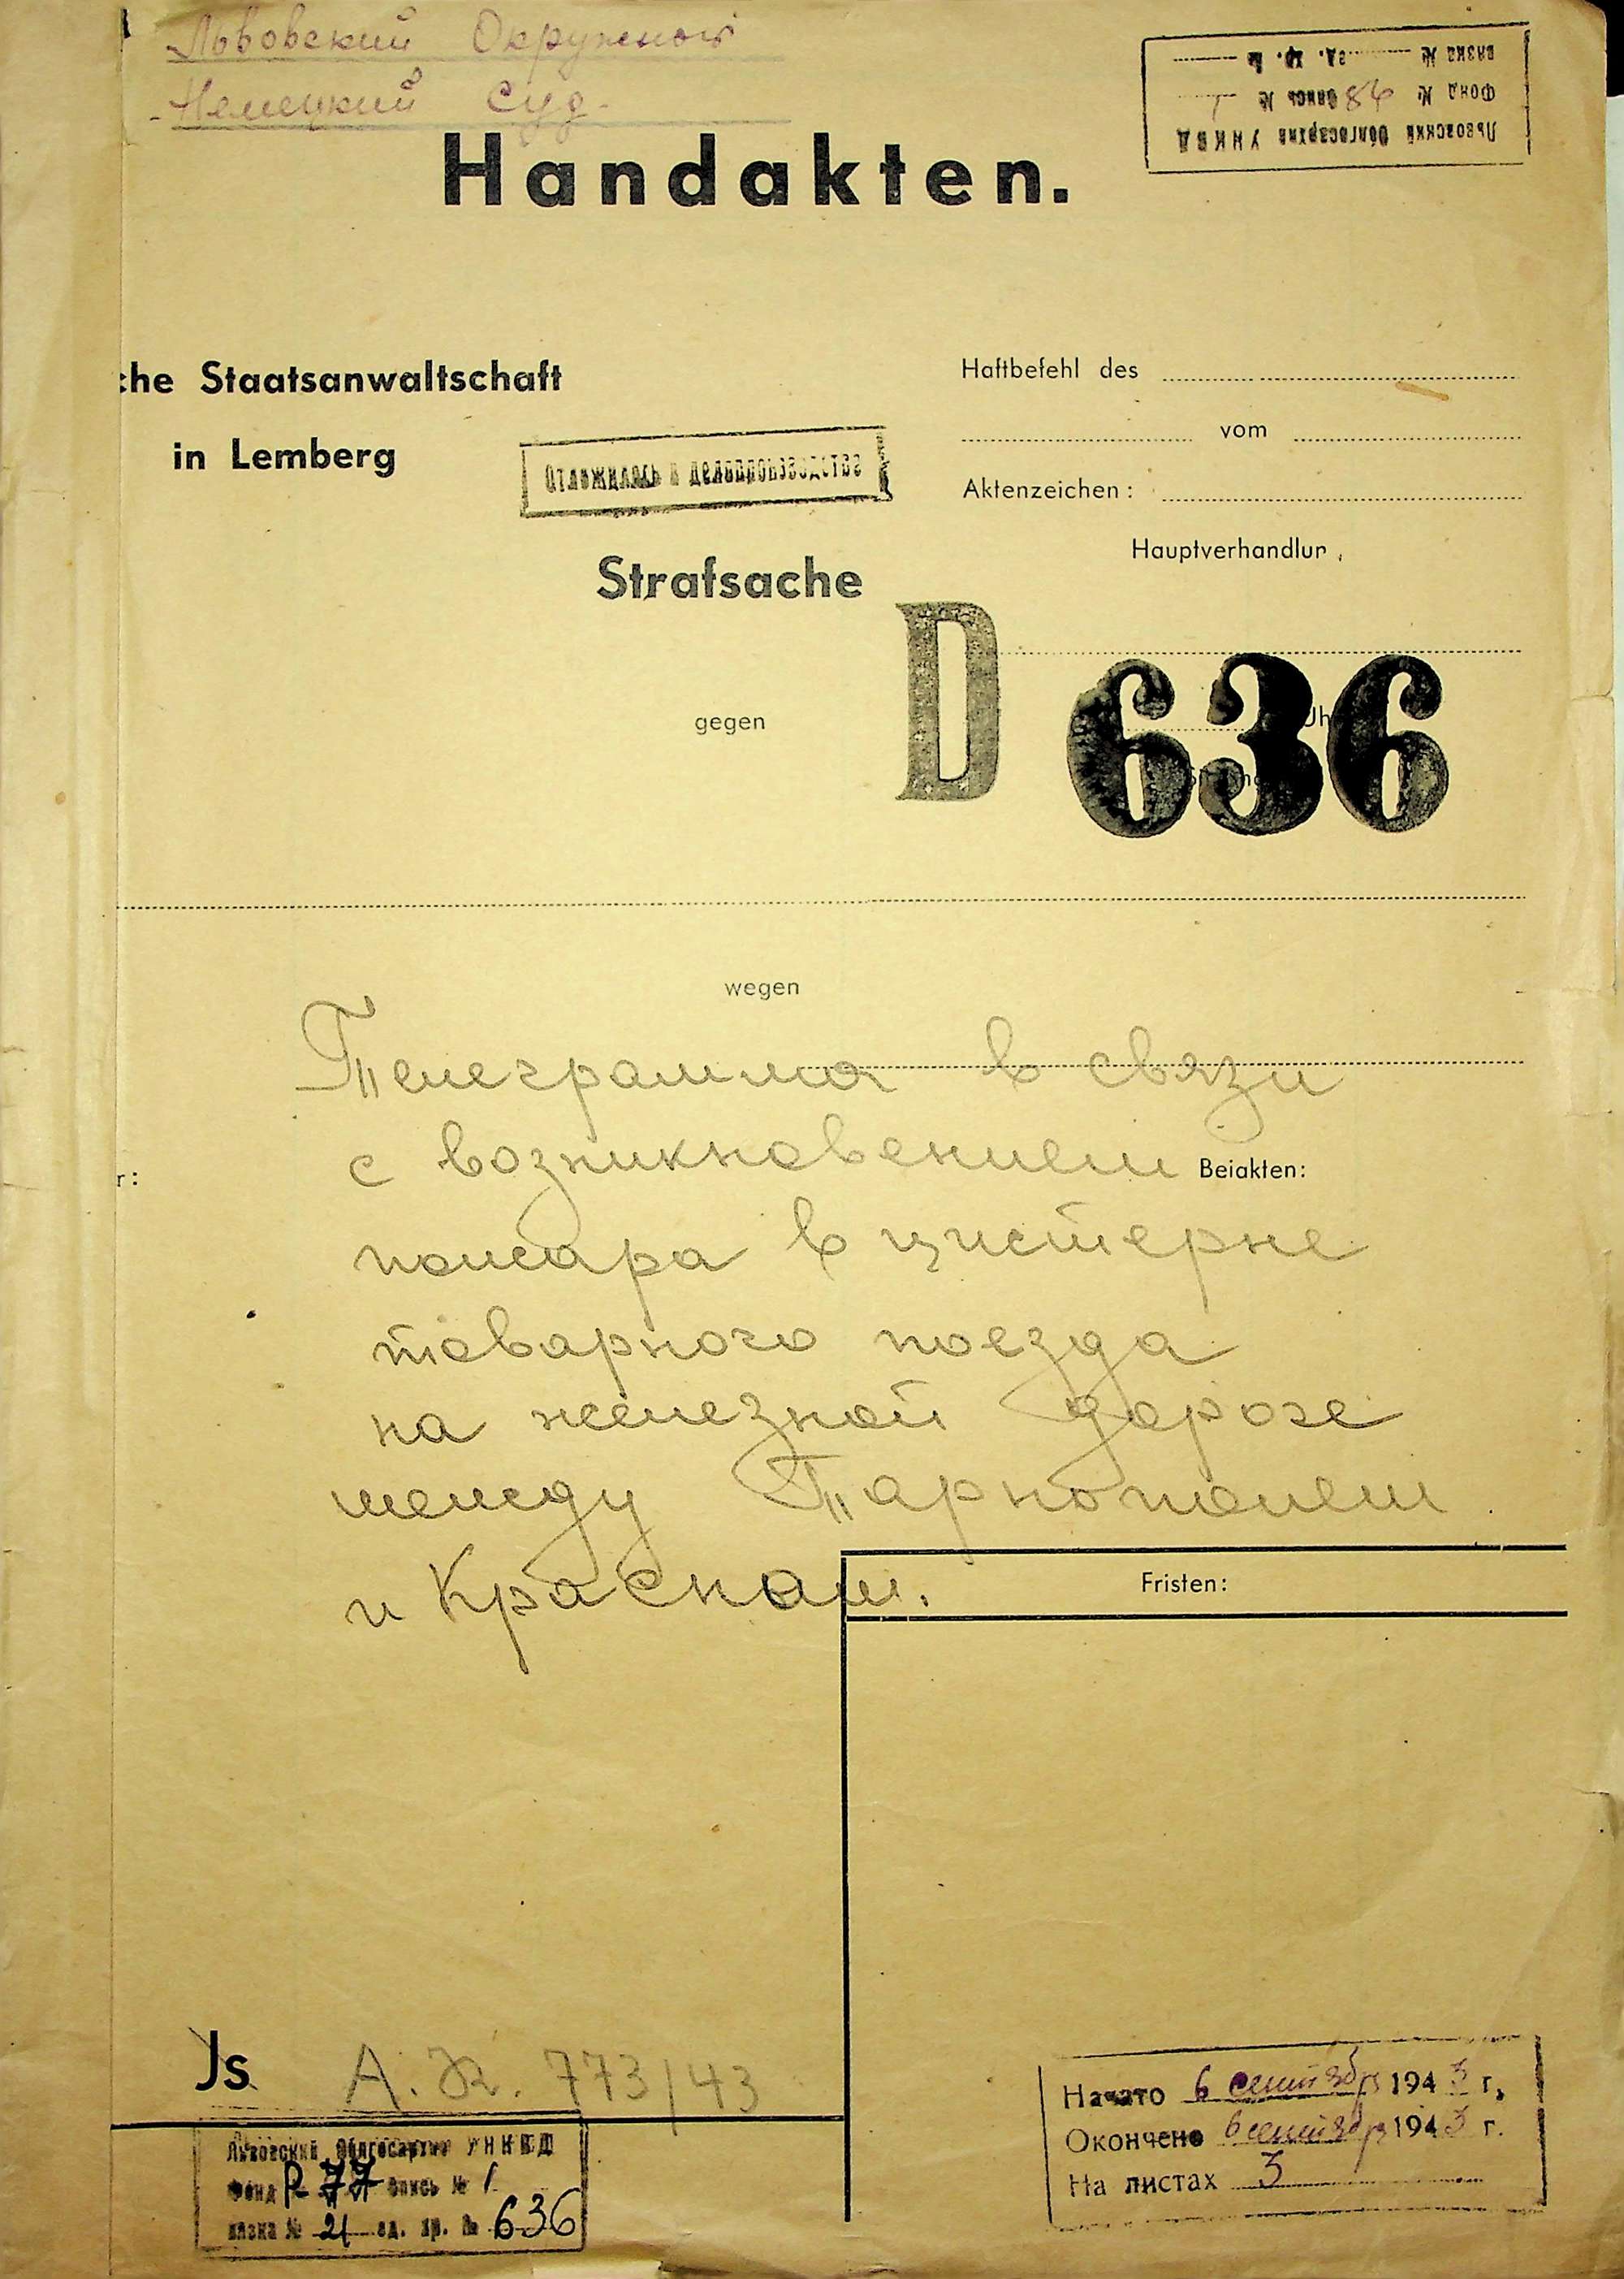 Львовский Окружной
Немецкий Суд.
Львовский Облгосархив УНКВД
Фонд № 86 опись №
вязка № ед. хр. №
Handakten.
che Staatsanwaltschaft
in Lemberg
Haftbefehl des
vom
Aktenzeichen:
Отложилось в делопроизводстве
Hauptverhandlun
Strafsache
D 636
gegen
Uh
wegen
Телеграмма в связи
с возникновением
Beiakten:
r:
пожара в цистерне
товарного поезда
на железной дороге
между Тарнополем
и Красном.
Fristen:
Js A. R. 773/43
Львовский Облгосархив УНКВД
Фонд Р-77 опись № 1
вязка № 21 ед. хр. № 636
Начато 6 сентября 1943 г.
Окончено 6 сентября 1943 г.
На листах 3